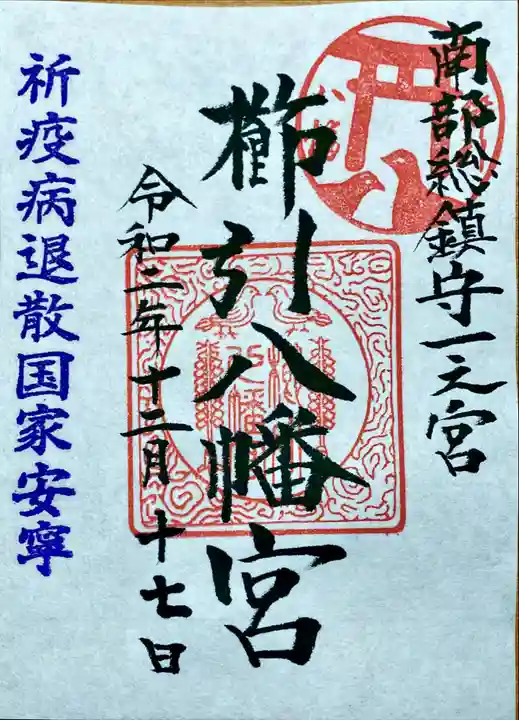 南部総鎮守一之宮
櫛引八幡宮
令和二年十二月十七日
祈疫病退散国家安寧